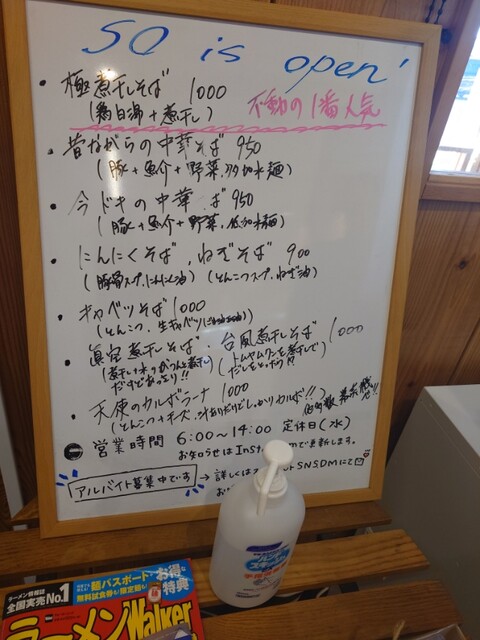 SO is open'
・極煮干しそば 1000
(鶏白湯+煮干し) 不動の1番人気
・昔ながらの中華そば 950
(豚+魚介+野菜、多加水麺)
・今ドキの中華そば 950
(豚+魚介+野菜、低加水麺)
・にんにくそば、ねぎそば 900
(豚骨スープ、にんにく油) (とんこつスープ、ねぎ油)
・キャベツそば 1000
(とんこつ、生キャベツ
・真空煮干しそば・台風煮干しそば 1000
(煮干し+水 がつんと煮干し (トムヤムクンを煮干しで
だすどあっょり!!) だしをとったり!?
・天使のカルボラーナ 1000
(とんこつ+チーズ、汁ありだけどしっかりカルボ!!)
営業時間 6:00〜14:00 定休日(水)
お知らせは で更新します。
アルバイト募集中です → 詳しくは SNS、DMにて
ラーメン情報誌
全国実売No.1
超パスポート
お得な特典
無料試食券も!限定麺も!
ラーメンWalker